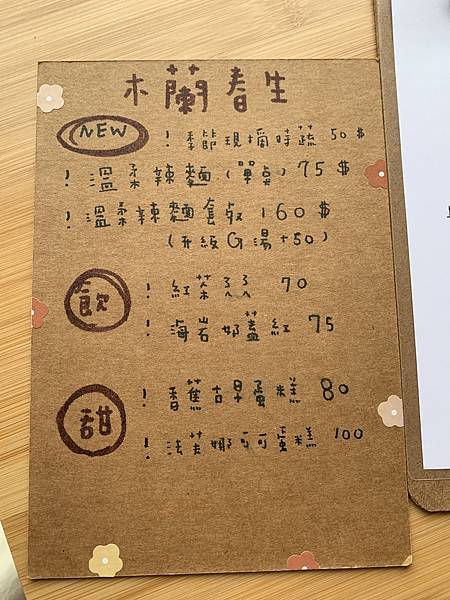 木蘭春生
NEW
! 季節現摘時蔬 50 $
! 溫柔辣麵 (單點) 75 $
! 溫柔辣麵套餐 160 $
(升級G湯+50)
飲
! 紅茶ㄋㄋ 70
! 海岩奶蓋紅 75
甜
! 香蕉古早蛋糕 80
! 法芙娜可可蛋糕 100